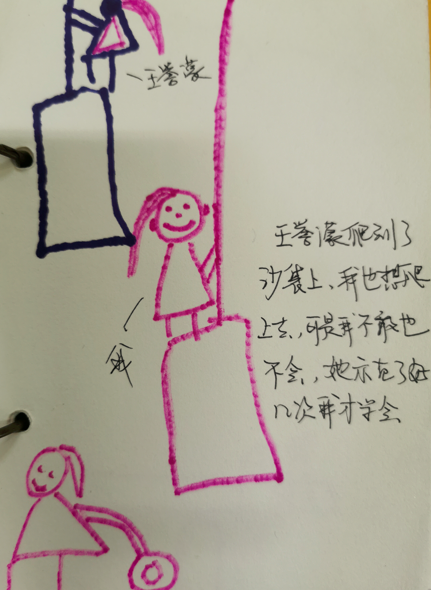 王誉蒙
王誉濛爬到了
沙袋上、我也想爬
上去,可是我不敢也
不会,她示范了好
几次我才学会
我